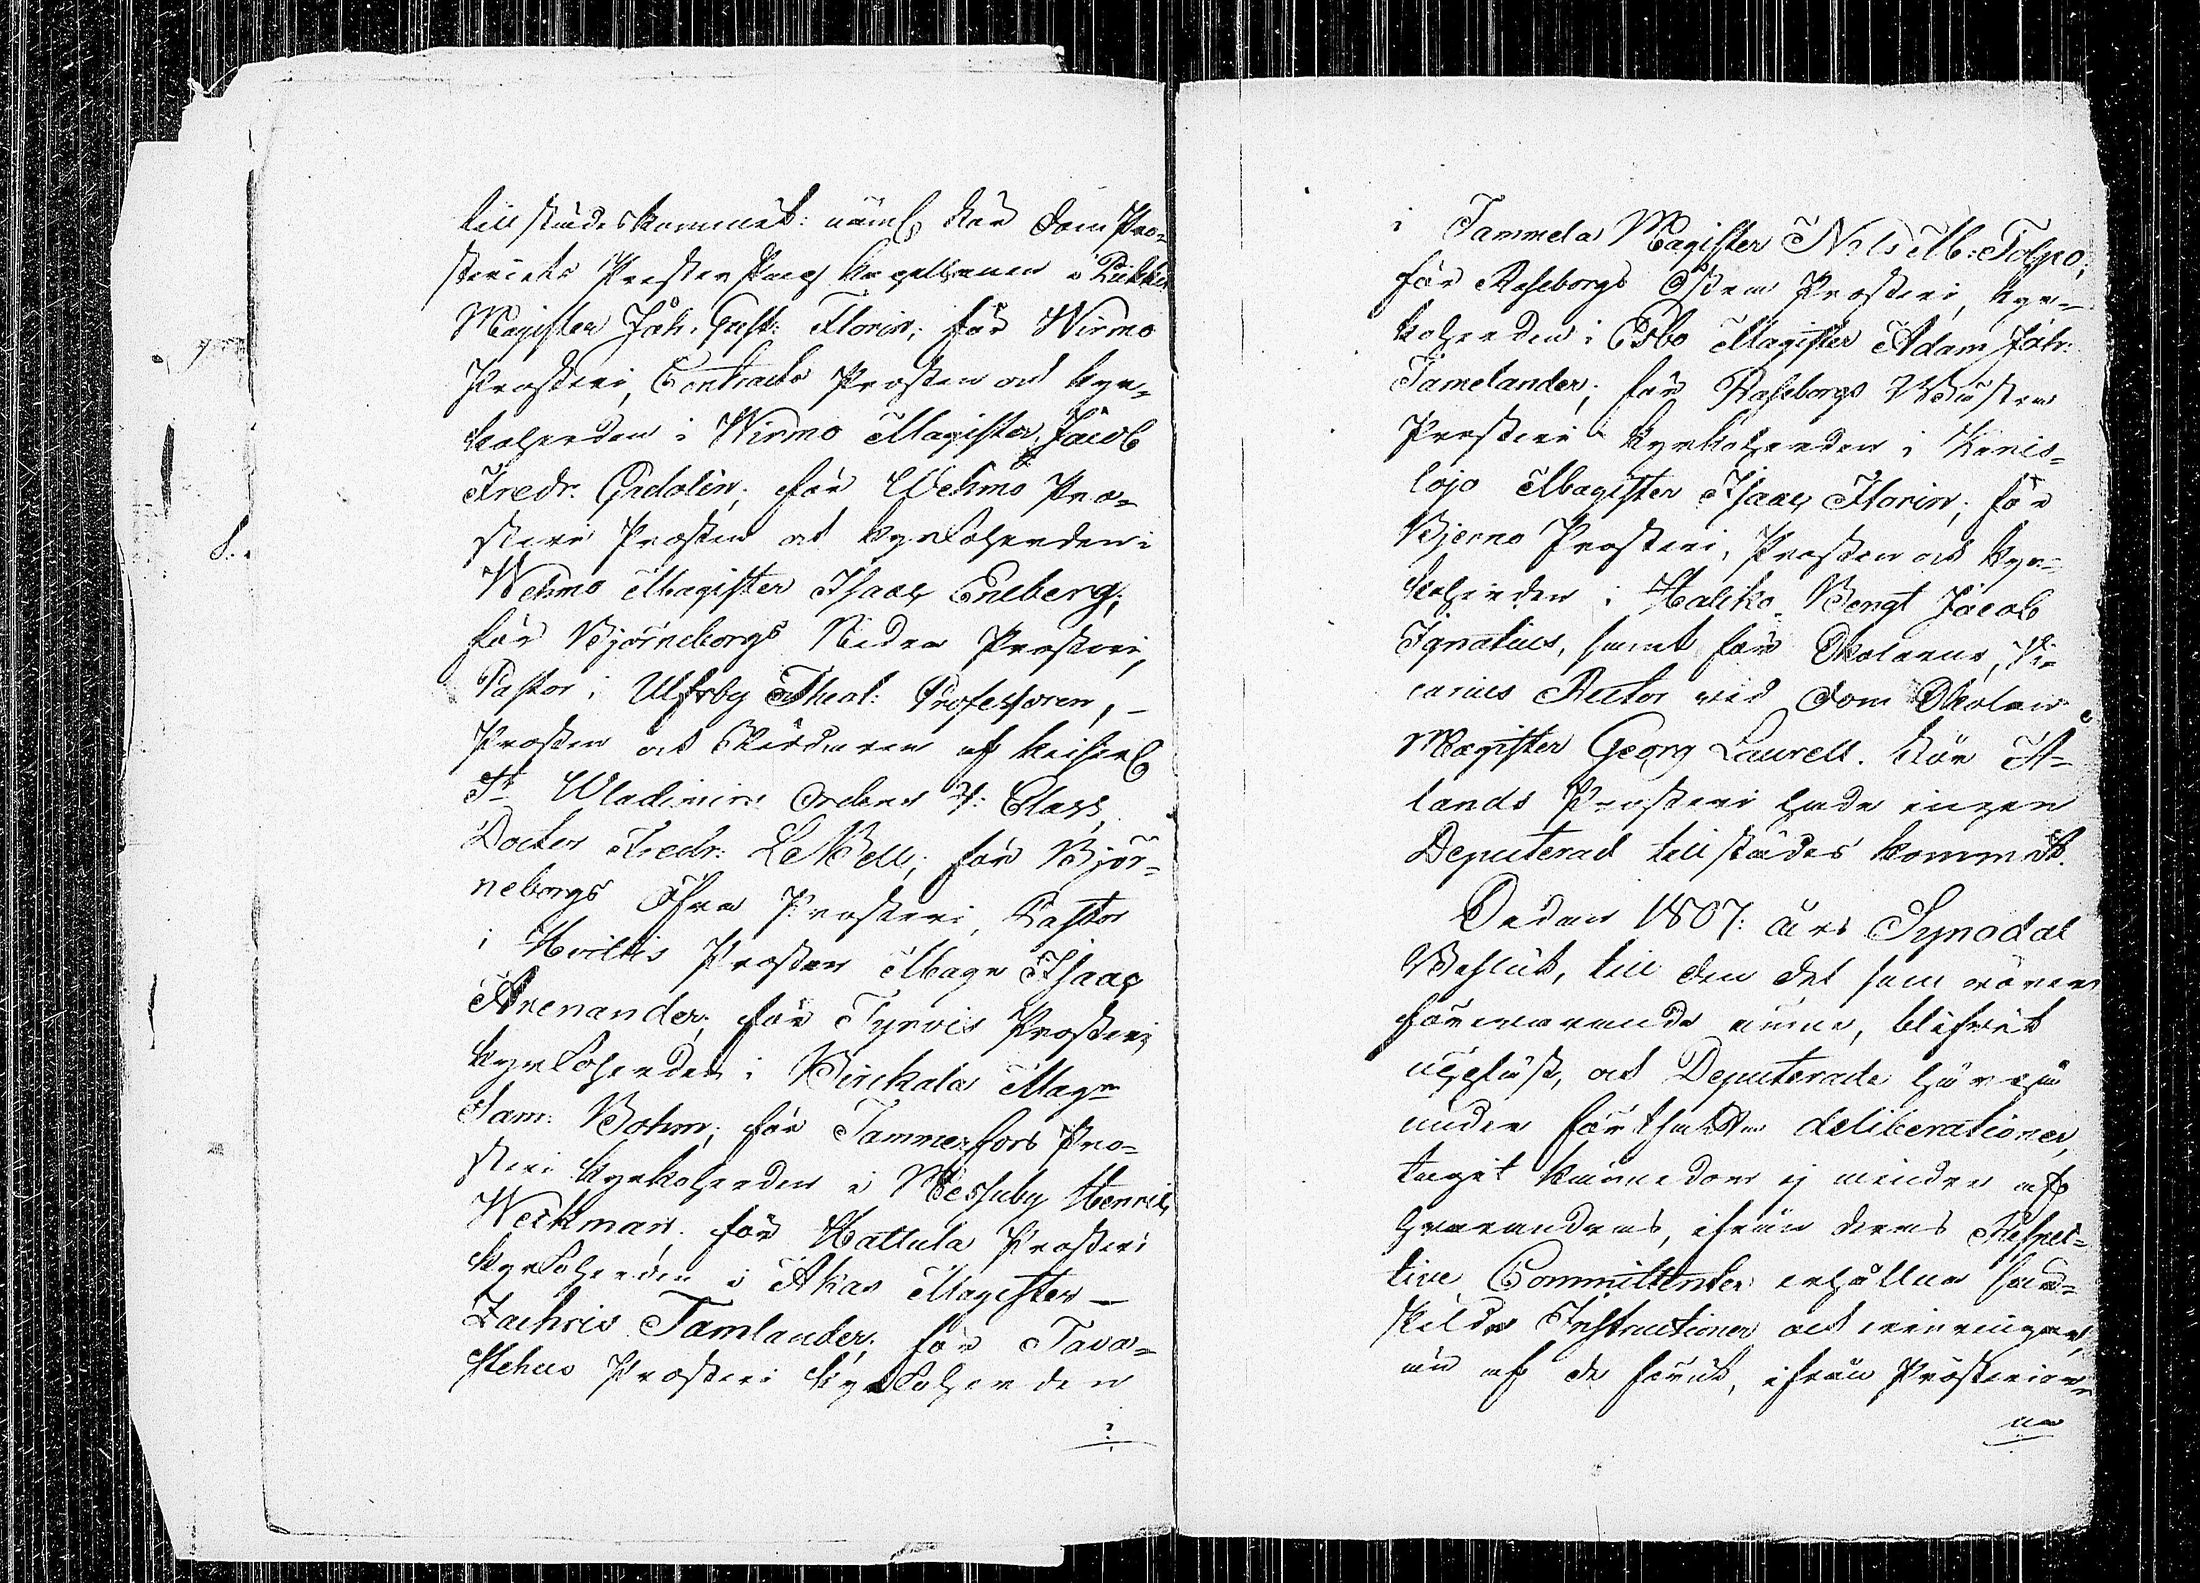 tillstädeskommit: näml. för Dom Pro-
steriets Presterskap Kapellanen i Rückto
Magister Joh. Gust: Florin; för Wirmo
Prosteri, Contracts Prosten och Kyr-
koherden i Wirmo Magister Jacob
Fredr. Gadolin; för Wehmo Pro-
steri Prosten och Kyrkoherden i
Wehmo Magister Isaac Eneberg;
för Björneborgs Nedre Prosteri,
Pastor i Ulfsby Theol: Professoren, -
Prosten och Riddaren af Keiserl.
St. Wladimirs Orden 4: Class,
Doctor Fredr: LeBell; för Björ-
neborgs Öfre Prosteri, Pastor
i Hvittis Prosten Magr Isaac
Arenander; för Tyrvis Prosteri
Kyrkoherden i Birckala Magr
Sam: Bohm; för Tammerfors Pro-
steri Kyrkoherden i Messuby Henric
Weckman; för Hattula Prosteri
Kyrkoherden i Akas Magister -
Zachris Tamlander; för Tava-
stehus Prosteri Kyrkoherden
i
i Tammela Magister Nils Ab: Tolpo;
för Raseborgs Östra Prosteri, Kyr-
koherden i Esbo Magister Adam Joh:
Tamelander; för Raseborgs Westra
Prosteri Kyrkoherden i Karis-
lojo Magister Isaac Florin; för
Bjerno Prosteri, Prosten och Kyr-
koherden i Haliko Bengt Jacob
Ignatius, samt för Skolorne, Vi-
carius Rector vid Dom Skolan
Magister Georg Laurell. För Å-
lands Prosteri hade ingen
Deputerad tillstädes kommit.
Sedan 1807: års Synodal
Beslut, till den del som rörer
förevarande ämne, blifvit
uppläst, och Deputerade härpå
under fortsatta deliberationer,
tagit kännedom ej mindre af
hvarandras, ifrån deras Respec-
tive Committenter erhållna sär-
skilda Instructioner och meningar,
än af de förut, ifrån Prosterier-
na